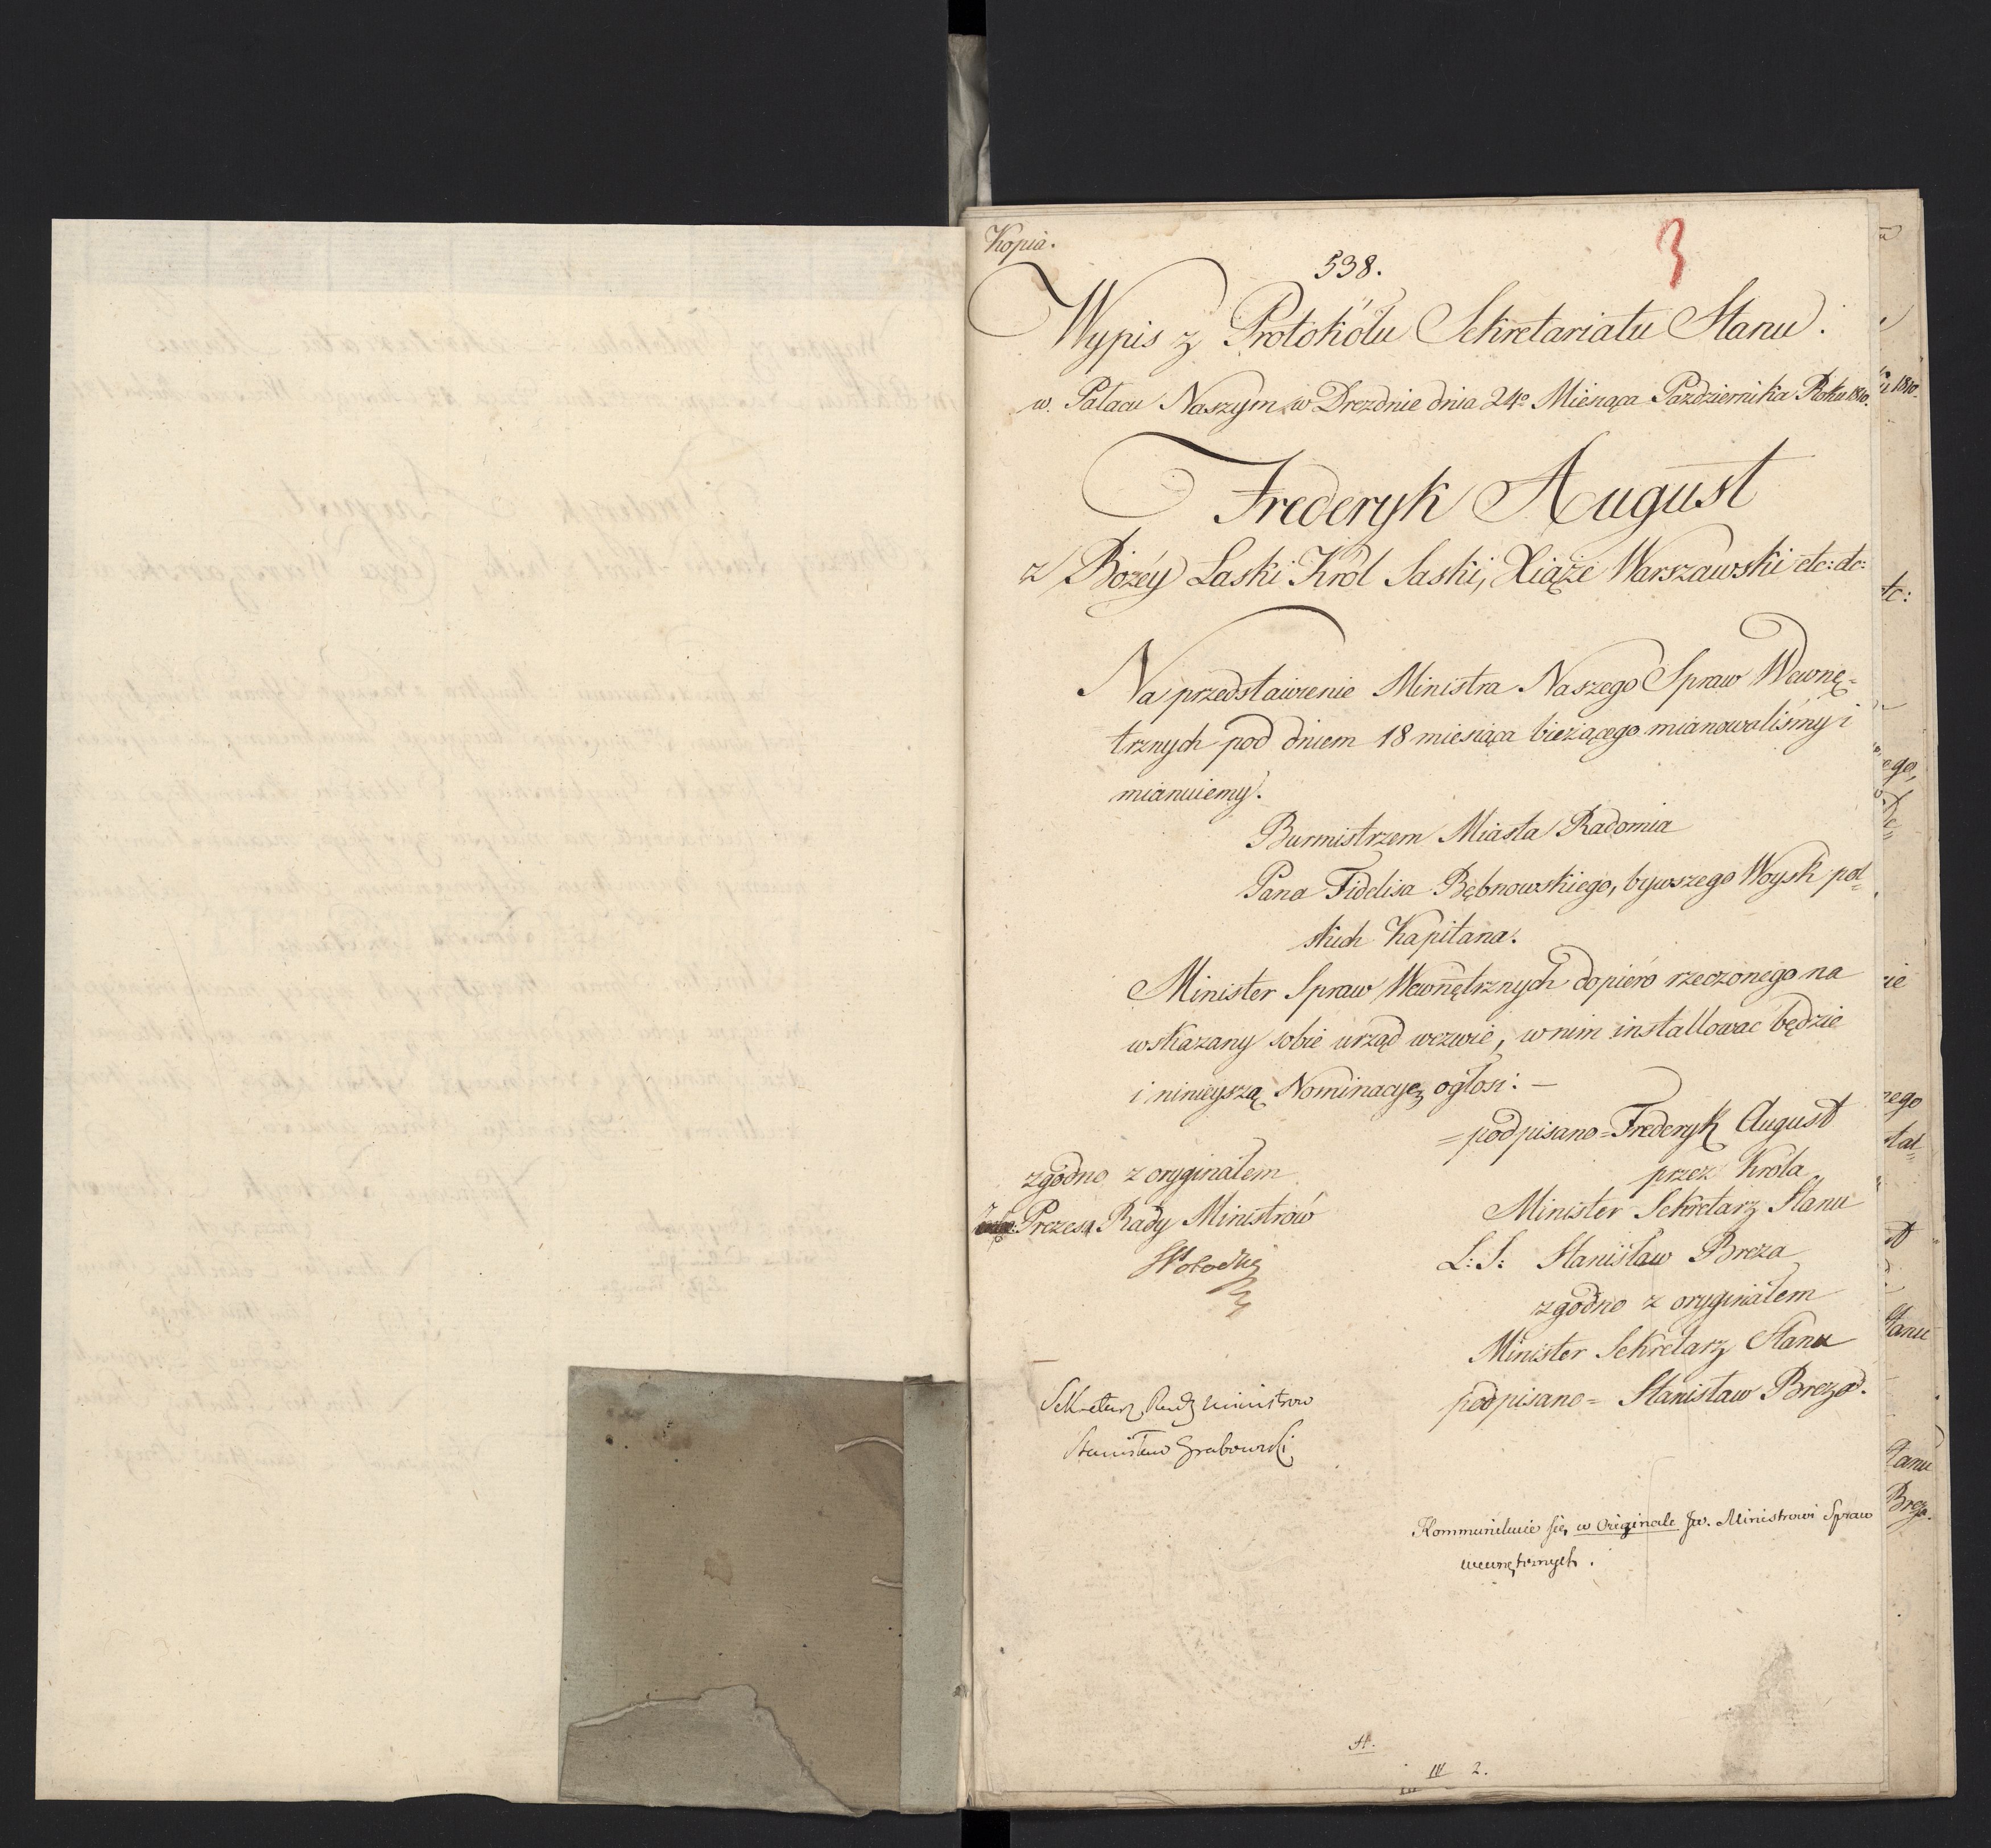 Kopia.
538.
3
Wypis z Protokółu Sekretariatu Stanu.
w. Pałacu Naszym w Dreznie dnia 24º Miesiąca Pazdziernika Roku 1810.
Frederyk August
z Bożéy Łaski Król Saski, Xiąże Warszawski etc: etc:
Na przedstawienie Ministra Naszego Spraw Wewnę-
trznych pod dniem 18 miesiąca bieżącego mianowaliśmy i
mianuiemy.
Burmistrzem Miasta Radomia
Pana Fidelisa Bębnowskiego, bywszego Woysk pol=
skich Kapitana.
Minister Spraw Wewnętrznych dopiero rzeczonego na
wskazany sobie urząd wezwie, w nim installować będzie
i ninieyszą Nominacyę ogłosi: —
= podpisano = Frederyk August
przez Króla
Minister Sekretarz Stanu
L: S: Stanisław Breza
zgodno z oryginałem
Minister Sekretarz Stanu
podpisano = Stanisław Breza.
zgodno z oryginałem
Prezesa Rady Ministrów
Sekretarz Rady Ministrow
Stanisław Grabowski
Kommunikuie się w Originale Jw. Ministrowi Spraw
wewnętrznych.
IV 2.